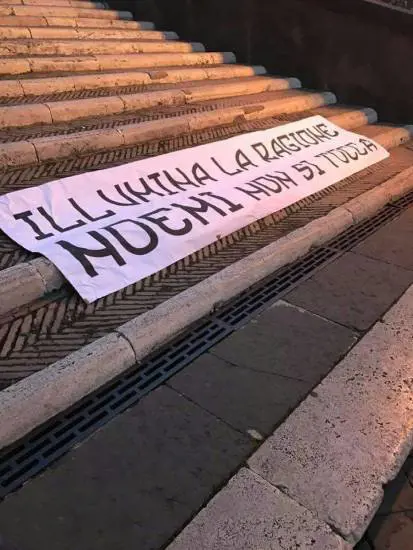 ILLUMINA LA RAGIONE
NOEMI NON SI TOCCA